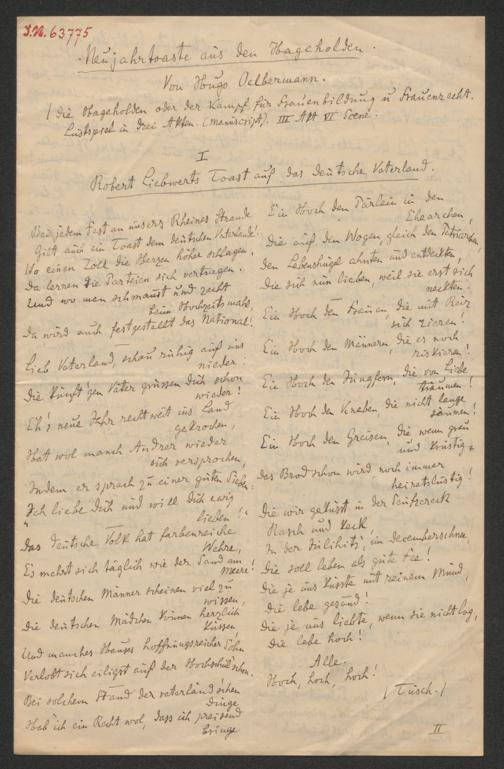 J.N. 63775
Neujahrtoaste aus den Hageholden.
Von Hugo Oelbermann.
(Die Hageholden oder der Kampf für Frauenbildung u Frauenrecht.
Lustspiel in drei Akten. (Manuscript). III Akt VI Scene.
I
Robert Liebwerts Toast auf das deutsche Vaterland.
Bei jedem Fest an unsers Rheines Strande
Gilt auch ein Toast dem deutschen Vaterlande.
Wo einen Zoll die Herzen höher schlagen,
Da lernen die Parteien sich vertragen.
Und wo man schmaust und zecht
beim Hochzeitsmahl,
Da wird auch festgestellt das National!
Lieb Vaterland, schau ruhig auf uns
nieder:
Die künft'gen Väter grüssen Dich schon
wieder!
Eh's neue Jahr recht weit ins Land
gekrochen,
Hat wol manch Andrer wieder
sich versprochen,
Indem er sprach zu einer guten Sieben:
"Ich liebe Dich und will Dich ewig
lieben!"
Das deutsche Volk hat farbenreiche
Wehre,
Es mehrt sich täglich wie der Sand am
Meere!
Die deutschen Männer scheinen viel zu
wissen
Die deutschen Mädchen können herzlich
küssen
Und manches Hauses hoffnungsreicher Sohn
Verlobt sich eiligst auf der Hochschul' schon.
Bei solchem Stand der vaterländ'schen
Dinge
Hab' ich ein Recht wol, dass ich preisend
bringe
Ein Hoch den Pärlein in den
Ehearchen,
Die auf den Wogen, gleich den Patriarchen,
Den Lebenshügel ahnten und entdeckten,
Die sich nun lieben, weil sie erst sich
neckten.
Ein Hoch den Frauen, die mit Reiz
sich zieren!
Ein Hoch den Männern, die es noch
riskieren!
Ein Hoch den Jungfern, die von Liebe
träumen!
Ein Hoch den Knaben, die nicht lange
säumen!
Ein Hoch den Greisen, die wenn grau
und krustig
Das Brod schon wird noch immer
heiratslustig!
Die wir geküsst in der Seufzereck
Rasch und keck,
In der Julihitz', im Decemberschnee
Die soll leben als gute Fee!
Die je uns küsste mit reinem Mund,
Die lebe gesund!
Die je uns liebte, wenn sie nicht log,
Die lebe hoch!
Alle.
Hoch, hoch, hoch!
(Tusch-)
II